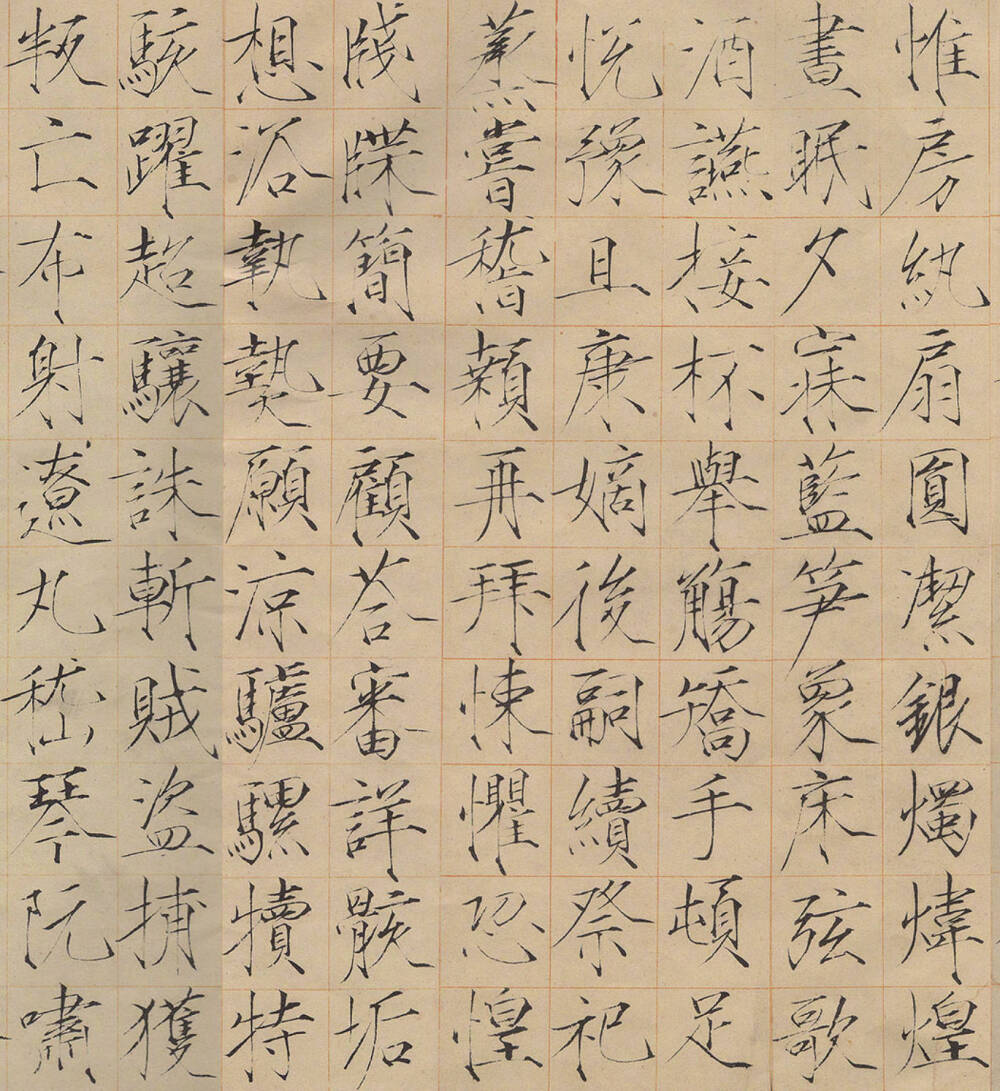 惟房紈扇圓潔銀燭煒煌
晝眠夕寐藍笋象床弦歌
酒讌接杯舉觴矯手頓足
悅豫且康嫡後嗣續祭祀
蒸嘗稽顙再拜悚懼恐惶
牋牒簡要顧荅審詳骸垢
想浴執熱願涼驢騾犢特
駭躍超驤誅斬賊盜捕獲
叛亡布射遼丸嵇琴阮嘯